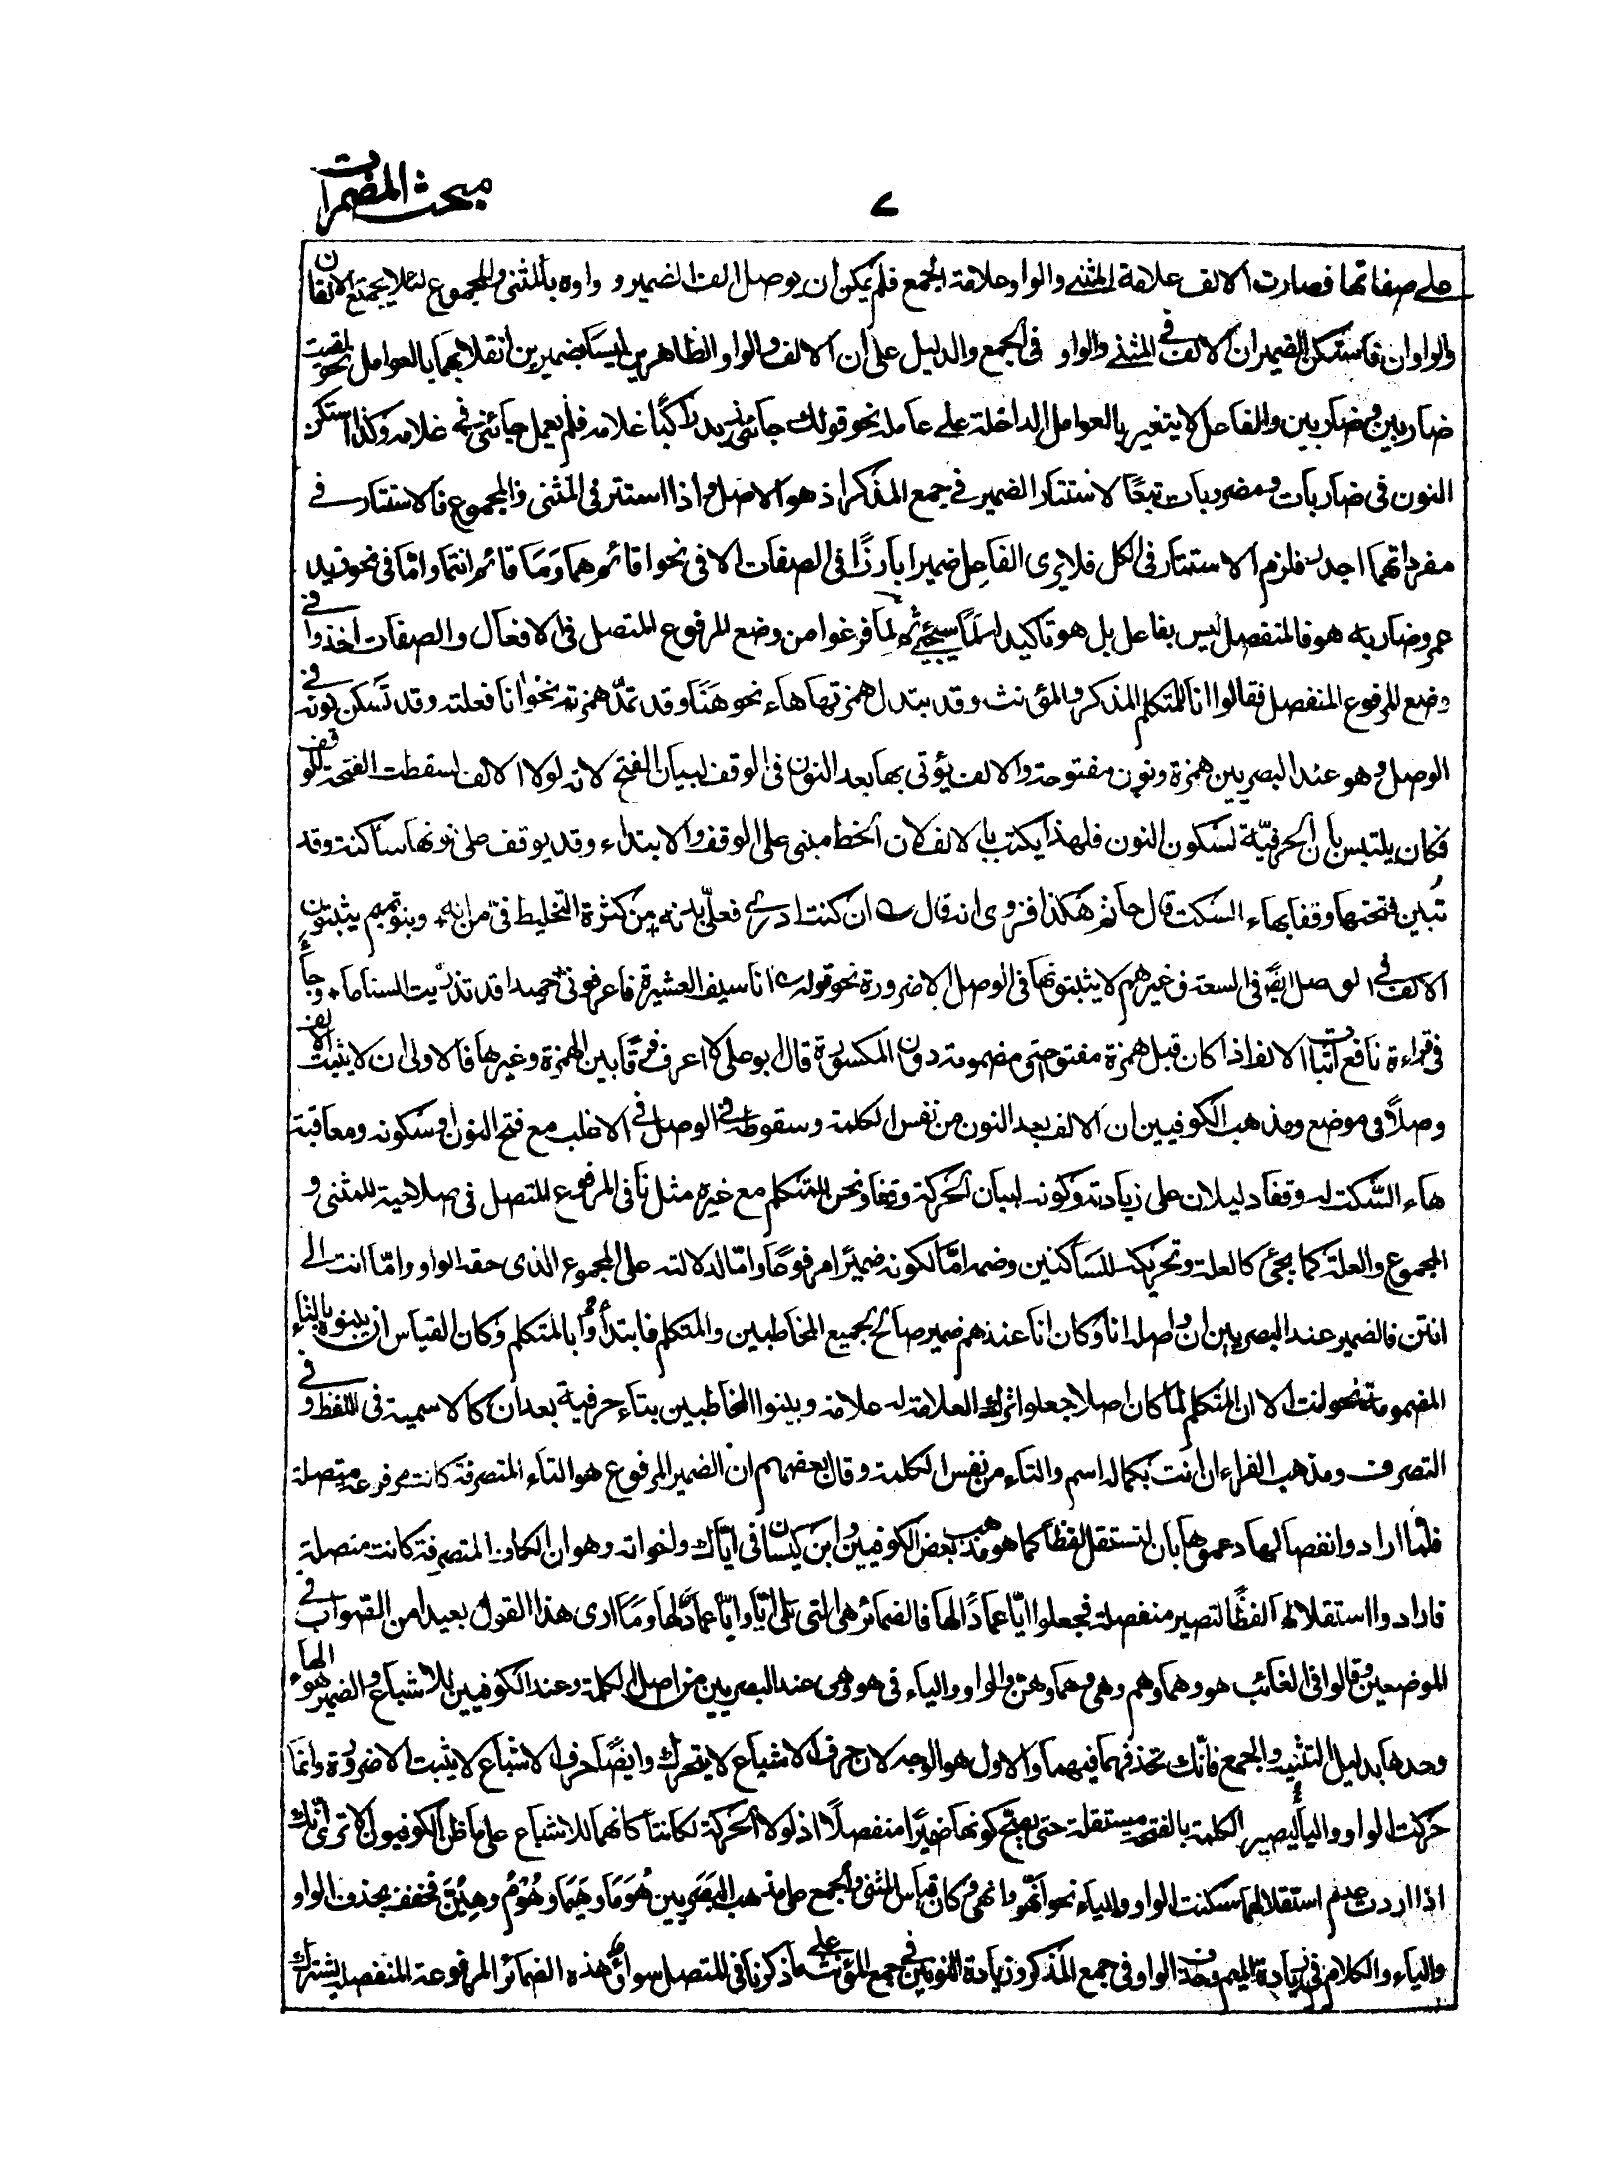 مبحث المضمرات
٧
على صفاتها فصارت الالف علامة المثنى والواو علامة الجمع فلم يمكن ان يوصل الف الضمير و واوه بالمثنى والمجموع لئلا يجتمع الالفان
والواوان فاستكن الضميران الالف فى المثنى والواو فى الجمع والدليل على ان الالف والواو الظاهرين ليسا بضميرين انقلابهما بالعوامل نحو لقيت
ضاربين وضاربين والفاعل لا يتغير بالعوامل الداخلة على عامله نحو قولك جاءنى زيد راكبًا غلامه فلم يعمل جاءنى فى غلامه وكذا استكن
النون فى ضاربات ومضروبات تبعًا لاستتار الضمير فى جمع المذكر اذ هو الاصل واذا استتر فى المثنى والمجموع فالاستتار فى
مفرداتهما اجدر فلزم الاستتار فى الكل فلا يرى الفاعل ضميرا بارزًا فى الصفات الا فى نحو اقائم هما وما قائم انتما واما فى نحو زيد
عمرو ضاربه هو فالمنفصل ليس بفاعل بل هو تاكيد لما سيجئ ثم لما فرغوا من وضع المرفوع المتصل فى الافعال والصفات اخذوا فى
وضع المرفوع المنفصل فقالوا انا للمتكلم المذكر والمؤنث وقد يبتدل همزتها هاء نحو هَنَا وقد تمدّ همزته نحو آنا فعلته وقد تسكن نونه فى
الوصل وهو عند البصريين همزة ونون مفتوحة والالف يؤتى بها بعد النون فى الوقف لبيان الفتح لانه لولا الالف لسقطت الفتحة للوقف
فكان يلتبس بان الحرفيّة لسكون النون فلهذا يكتب بالالف لان الخط مبنى على الوقف والابتداء وقد يوقف على نونها ساكنت وقد
تُبين فتحتها وقفا بهاء السكت قال حاتم هكذا فزدى انه قال ان كنت ادرى فعلىّ بدنه من كثرة التخليط فىّ من انه وبنو تميم يثبتون
الالف فى الوصل ايضًا فى السعة وغيرهم لا يثبتونها فى الوصل الا ضرورة نحو قوله انا سيف العشيرة فاعرفونى حميدا قد تذريت السناما وجاء
فى قراءة نافع اثبات الالف اذا كان قبل همزة مفتوحة او مضمومة دون المكسورة قال ابو على لا اعرف فرقًا بين الهمزة وغيرها فالاولى ان لا يثبت الالف
وصلًا فى موضع ومذهب الكوفيين ان الالف بعد النون من نفس الكلمة وسقوطه فى الوصل فى الاغلب مع فتح النون او سكونه ومعاقبة
هاء السّكت له وقفا دليلان على زيادته وكونه لبيان الحركة وقفا ونحن للمتكلم مع غيره مثل نا فى المرفوع المتصل فى صلاحية للمثنى و
المجموع والعلة كما يجئ كالعلة وتحريكه للساكنين وضمه امّا لكونه ضميرًا مرفوعًا وامّا لدلالته على المجموع الذى حقه الواو وامّا انت الى
انتن فالضمير عند البصريين ان واصله انا وكان انا عندهم ضمير صالح لجميع المخاطبين والمتكلم فابتدأوا بالمتكلم وكان القياس ان يبينوه بالتاء
المضمومة نحو انت الا ان المتكلم لما كان اصلا جعلوا ترك العلامة له علامة وبينوا المخاطبين بتاء حرفية بعد ان كالاسمية فى اللفظ وفى
التصرف ومذهب الفراء ان انت بكماله اسم والتاء من نفس الكلمة وقال بعضهم ان الضمير المرفوع هو التاء المتصرفة كانت مرفوعة متصلة
فلما ارادوا انفصالها دعموها بان لتستقل لفظًا كما هو مذهب بعض الكوفيين وابن كيسان فى اياك واخواته وهو ان الكاف المتصرفة كانت متصلة
فارادوا استقلالها لفظًا لتصير منفصلة فجعلوا ايّا عمادًا لها فالضمائر هى التى تلى ايّا وايّا عماد لها وما ارى هذا القول بعيدا من الصّواب فى
الموضعين وقالوا فى الغائب هو وهما وهم وهى وهما وهن والواو والياء فى هو وهى عند البصريين من اصل الكلمة وعند الكوفيين للاشباع والضمير هو الهاء
وحدها بدليل التثنية والجمع فانّك تحذفهما فيهما والاول هو الوجه لان حرف الاشباع لا يتحرك وايضًا حرف الاشباع لا يثبت الا ضرورة وانما
حركت الواو والياء ليصير الكلمة بالفتحة مستقلة حتى يصح كونها ضميرًا منفصلًا اذ لولا الحركة لكانتا كانهما للاشباع على ما ظن الكوفيون الا ترى انك
اذا اردت عدم استقلالهما سكنت الواو والياء نحو انّهو وانهى وكان قياس المثنى والجمع على مذهب البصريين هُوَمَا وهِيَمَا وهُوُمُ وهِيُنَّ فخفف بحذف الواو
والياء والكلام فى زيادة الميم وحذف الواو فى جمع المذكر وزيادة النونين فى جمع المؤنث على ما ذكرنا فى المتصل سواء وهذه الضمائر المرفوعة المنفصلة يشترك